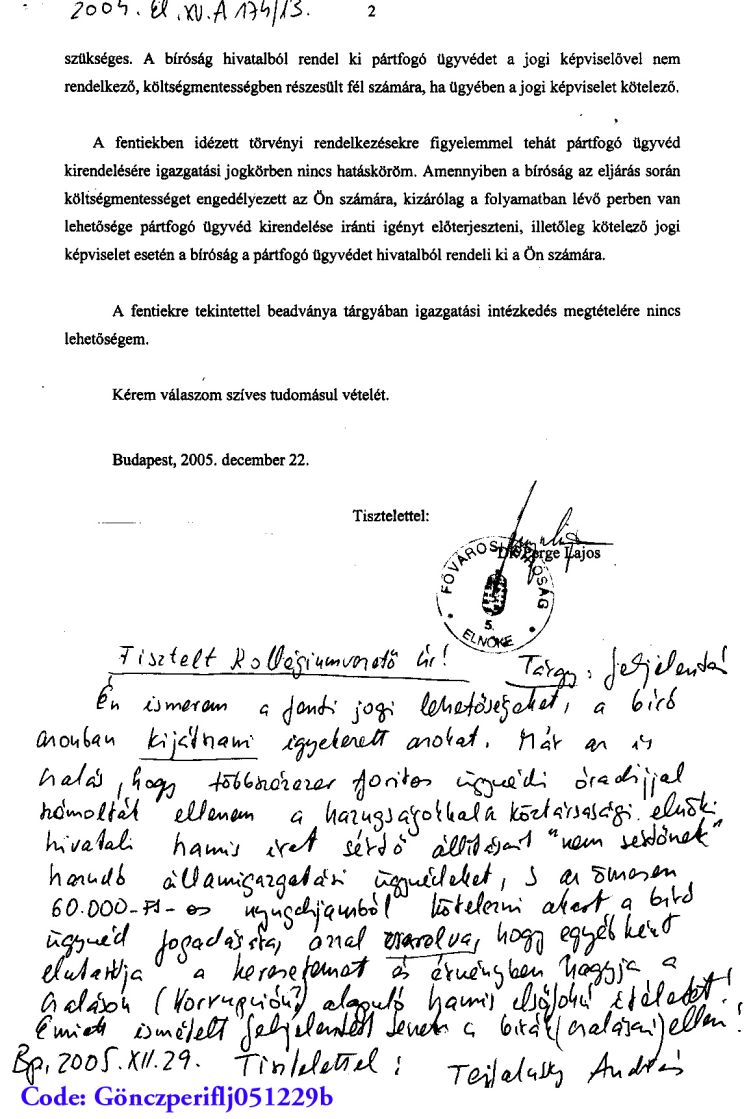 2004. El. XV. A 174/13.
2
szükséges. A bíróság hivatalból rendel ki pártfogó ügyvédet a jogi képviselővel nem
rendelkező, költségmentességben részesült fél számára, ha ügyében a jogi képviselet kötelező.
A fentiekben idézett törvényi rendelkezésekre figyelemmel tehát pártfogó ügyvéd
kirendelésére igazgatási jogkörben nincs hatásköröm. Amennyiben a bíróság az eljárás során
költségmentességet engedélyezett az Ön számára, kizárólag a folyamatban lévő perben van
lehetősége pártfogó ügyvéd kirendelése iránti igényt előterjeszteni, illetőleg kötelező jogi
képviselet esetén a bíróság a pártfogó ügyvédet hivatalból rendeli ki a Ön számára.
A fentiekre tekintettel beadványa tárgyában igazgatási intézkedés megtételére nincs
lehetőségem.
Kérem válaszom szíves tudomásul vételét.
Budapest, 2005. december 22.
Tisztelettel:
Dr. Perge Lajos
FŐVÁROSI BÍRÓSÁG
5.
ELNÖKE
Tisztelt Kollégiumvezető Úr! Tárgy: feljelentés
Én ismerem a fenti jogi lehetőségeket, a bíró
azonban kijátszani igyekezett azokat. Már az is
csalás, hogy többszázezer forintos ügyvédi óradíjjal
számoltak ellenem a hazugságokkal a köztársasági elnöki
hivatali hamis iratsértő állításait "nem sértőnek"
hazudó államigazgatási ügyvédeket, s az összesen
60.000-Ft-os nyugdíjamból kötelezni akart a bíró
ügyvéd fogadására, azzal zsarolva, hogy egyébként
elutasítja a keresetemet és érvényben hagyja a
csaláson (korrupción?) alapuló hamis elsőfokú ítéletet!
Emiatt ismételt feljelentést teszek a bírák (csalásai) ellen!
Bp, 2005. XII. 29. Tisztelettel: András
Code: Gönczperiflj051229b